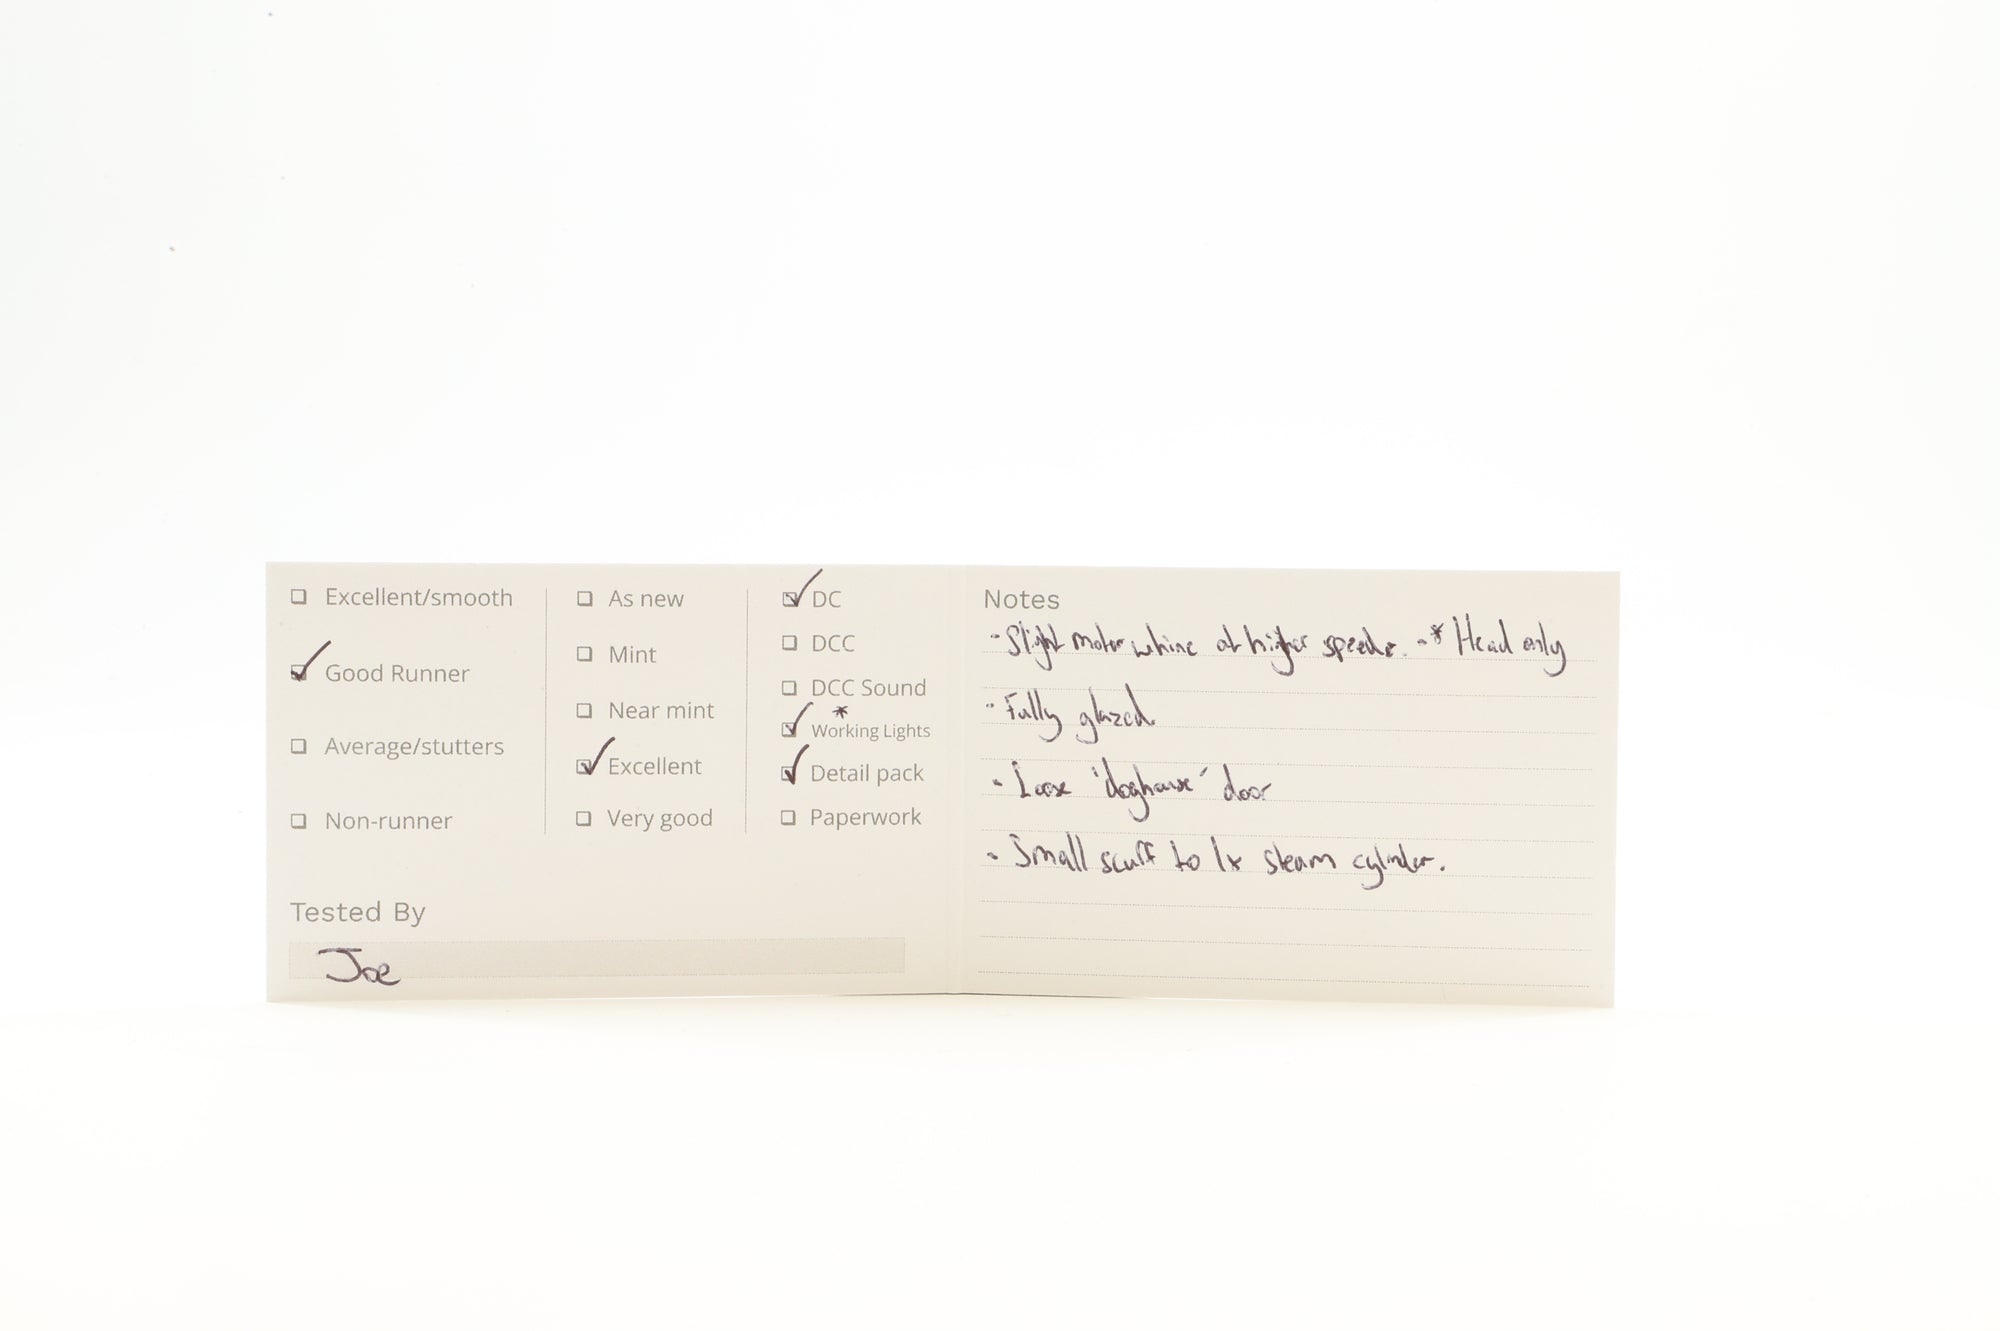 Excellent/smooth
Good Runner
Average/stutters
Non-runner
As new
Mint
Near mint
Excellent
Very good
DC
DCC
DCC Sound
*
Working Lights
Detail pack
Paperwork
Tested By
Joe
Notes
- Slight motor whine at higher speeds. - * Head only
- Fully glazed.
- Loose 'doghouse' door
- Small scuff to 1x steam cylinder.